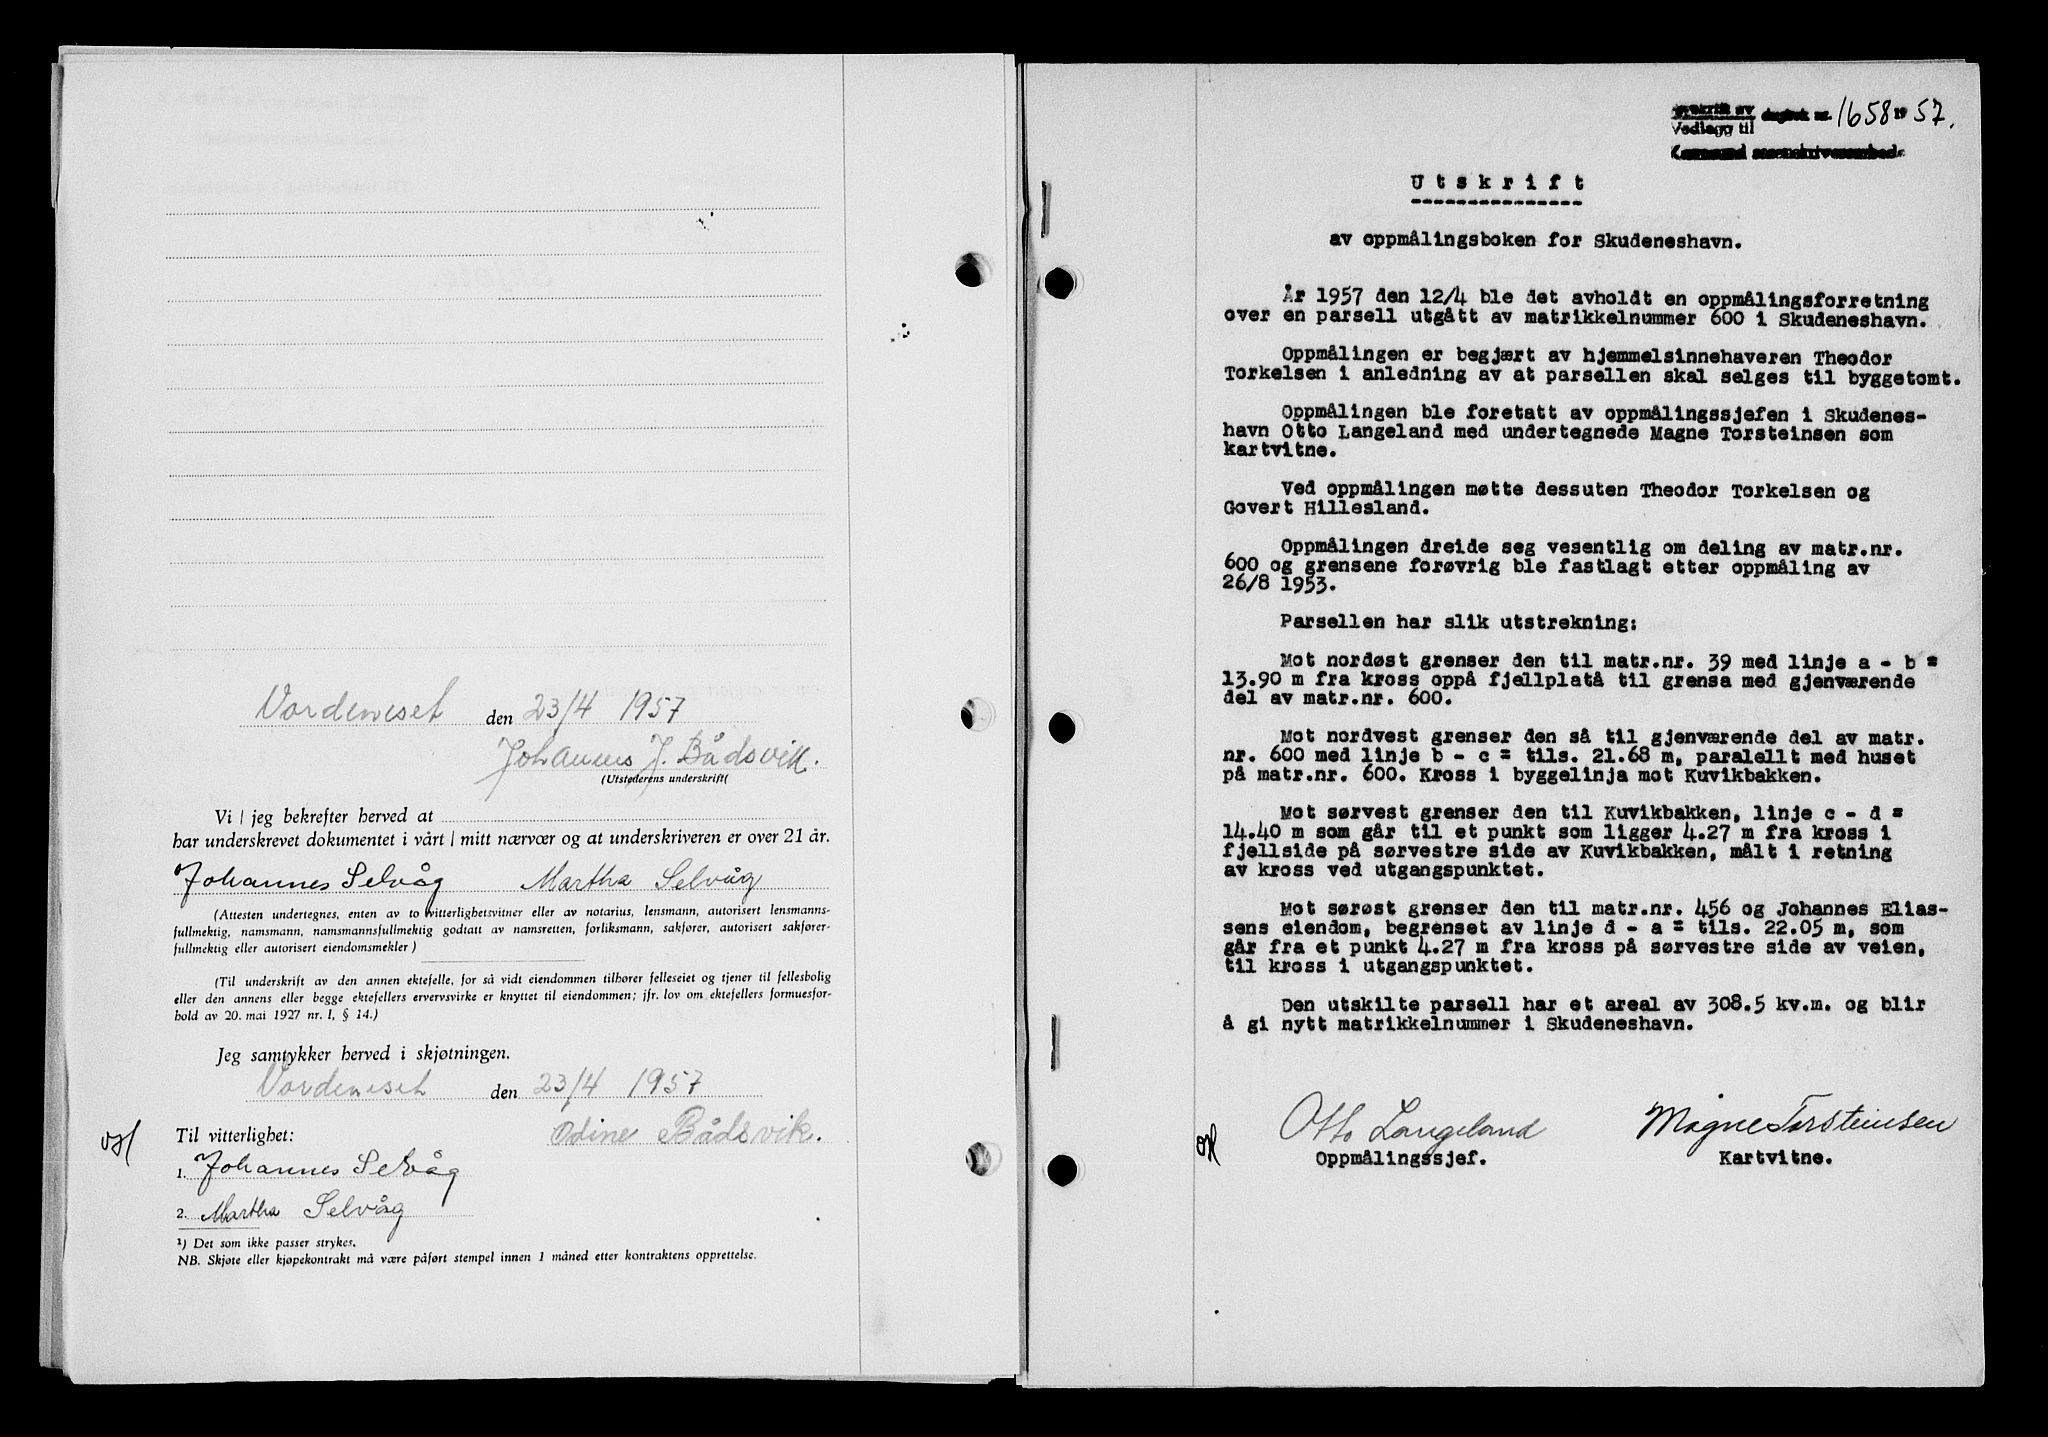 Vordeneset den 23/4 1957
Johannes J. Bådsvik.
(Utstederens underskrift(
Vi / jeg bekrefter herved at
har underskrevet dokumentet i vårt / mitt nærvær og at underskriveren er over 21 år.
Johannes Selvåg Martha Selvåg
(Attesten undertegnes, enten av to vitterlighetsvitner eller av notarius, lensmann, autorisert lensmanns-
fullmektig, namsmann, namsmannsfullmektig godtatt av namsretten, forliksmann, sakfører, autorisert sakfører-
fullmektig eller autorisert eiendomsmekler)
(Til underskrift av den annen ektefelle, for så vidt eiendommen tilhører felleseiet og tjener til fellesbolig
eller den annens eller begge ektefellers ervervsvirke er knyttet til eiendommen; jfr. lov om ektefellers formuesfor-
hold av 20. mai 1927 nr. 1, § 14.)
Jeg samtykker herved i skjøtningen.
Vordeneset den 23/4 1957
Til vitterlighet: Odine Bådsvik.
1. Johannes Selvåg
2. Martha Selvåg
¹) Det som ikke passer strykes.
NB. Skjøte eller kjøpekontrakt må være påført stempel innen 1 måned etter kontraktens opprettelse.
Vedlegg til dagbok nr. 1658 1957.
Utskrift
av oppmålingsboken for Skudeneshavn.
År 1957 den 12/4 ble det avholdt en oppmålingsforretning
over en parsell utgått av matrikkelnummer 600 i Skudeneshavn.
Oppmålingen er begjært av hjemmelsinnehaveren Theodor
Torkelsen i anledning av at parsellen skal selges til byggetomt.
Oppmålingen ble foretatt av oppmålingssjefen i Skudenes-
havn Otto Langeland med undertegnede Magne Torsteinsen som
kartvitne.
Ved oppmålingen møtte dessuten Theodor Torkelsen og
Govert Hillesland.
Oppmålingen dreide seg vesentlig om deling av matr.nr.
600 og grensene forøvrig ble fastlagt etter oppmåling av
26/8 1953.
Parsellen har slik utstrekning:
Mot nordøst grenser den til matr.nr. 39 med linje a - b =
13.90 m fra kross oppå fjellplatå til grensa med gjenværende
del av matr.nr. 600.
Mot nordvest grenser den så til gjenværende del av matr.
nr. 600 med linje b - c = tils. 21.68 m, paralellt med huset
på matr.nr. 600. Kross i byggelinja mot Kuvikbakken.
Mot sørvest grenser den til Kuvikbakken, linje c - d =
14.40 m som går til et punkt som ligger 4.27 m fra kross i
fjellside på sørvestre side av Kuvikbakken, målt i retning
av kross ved utgangspunktet.
Mot sørøst grenser den til matr.nr. 456 og Johannes Elias-
sens eiendom, begrenset av linje d - a = tils. 22.05 m, som
går fra et punkt 4.27 m fra kross på sørvestre side av veien,
til kross i utgangspunktet.
Den utskilte parsell har et areal av 308.5 kv.m. og blir
å gi nytt matrikkelnummer i Skudeneshavn.
Otto Langeland Magne Torsteinsen
Oppmålingssjef. Kartvitne.